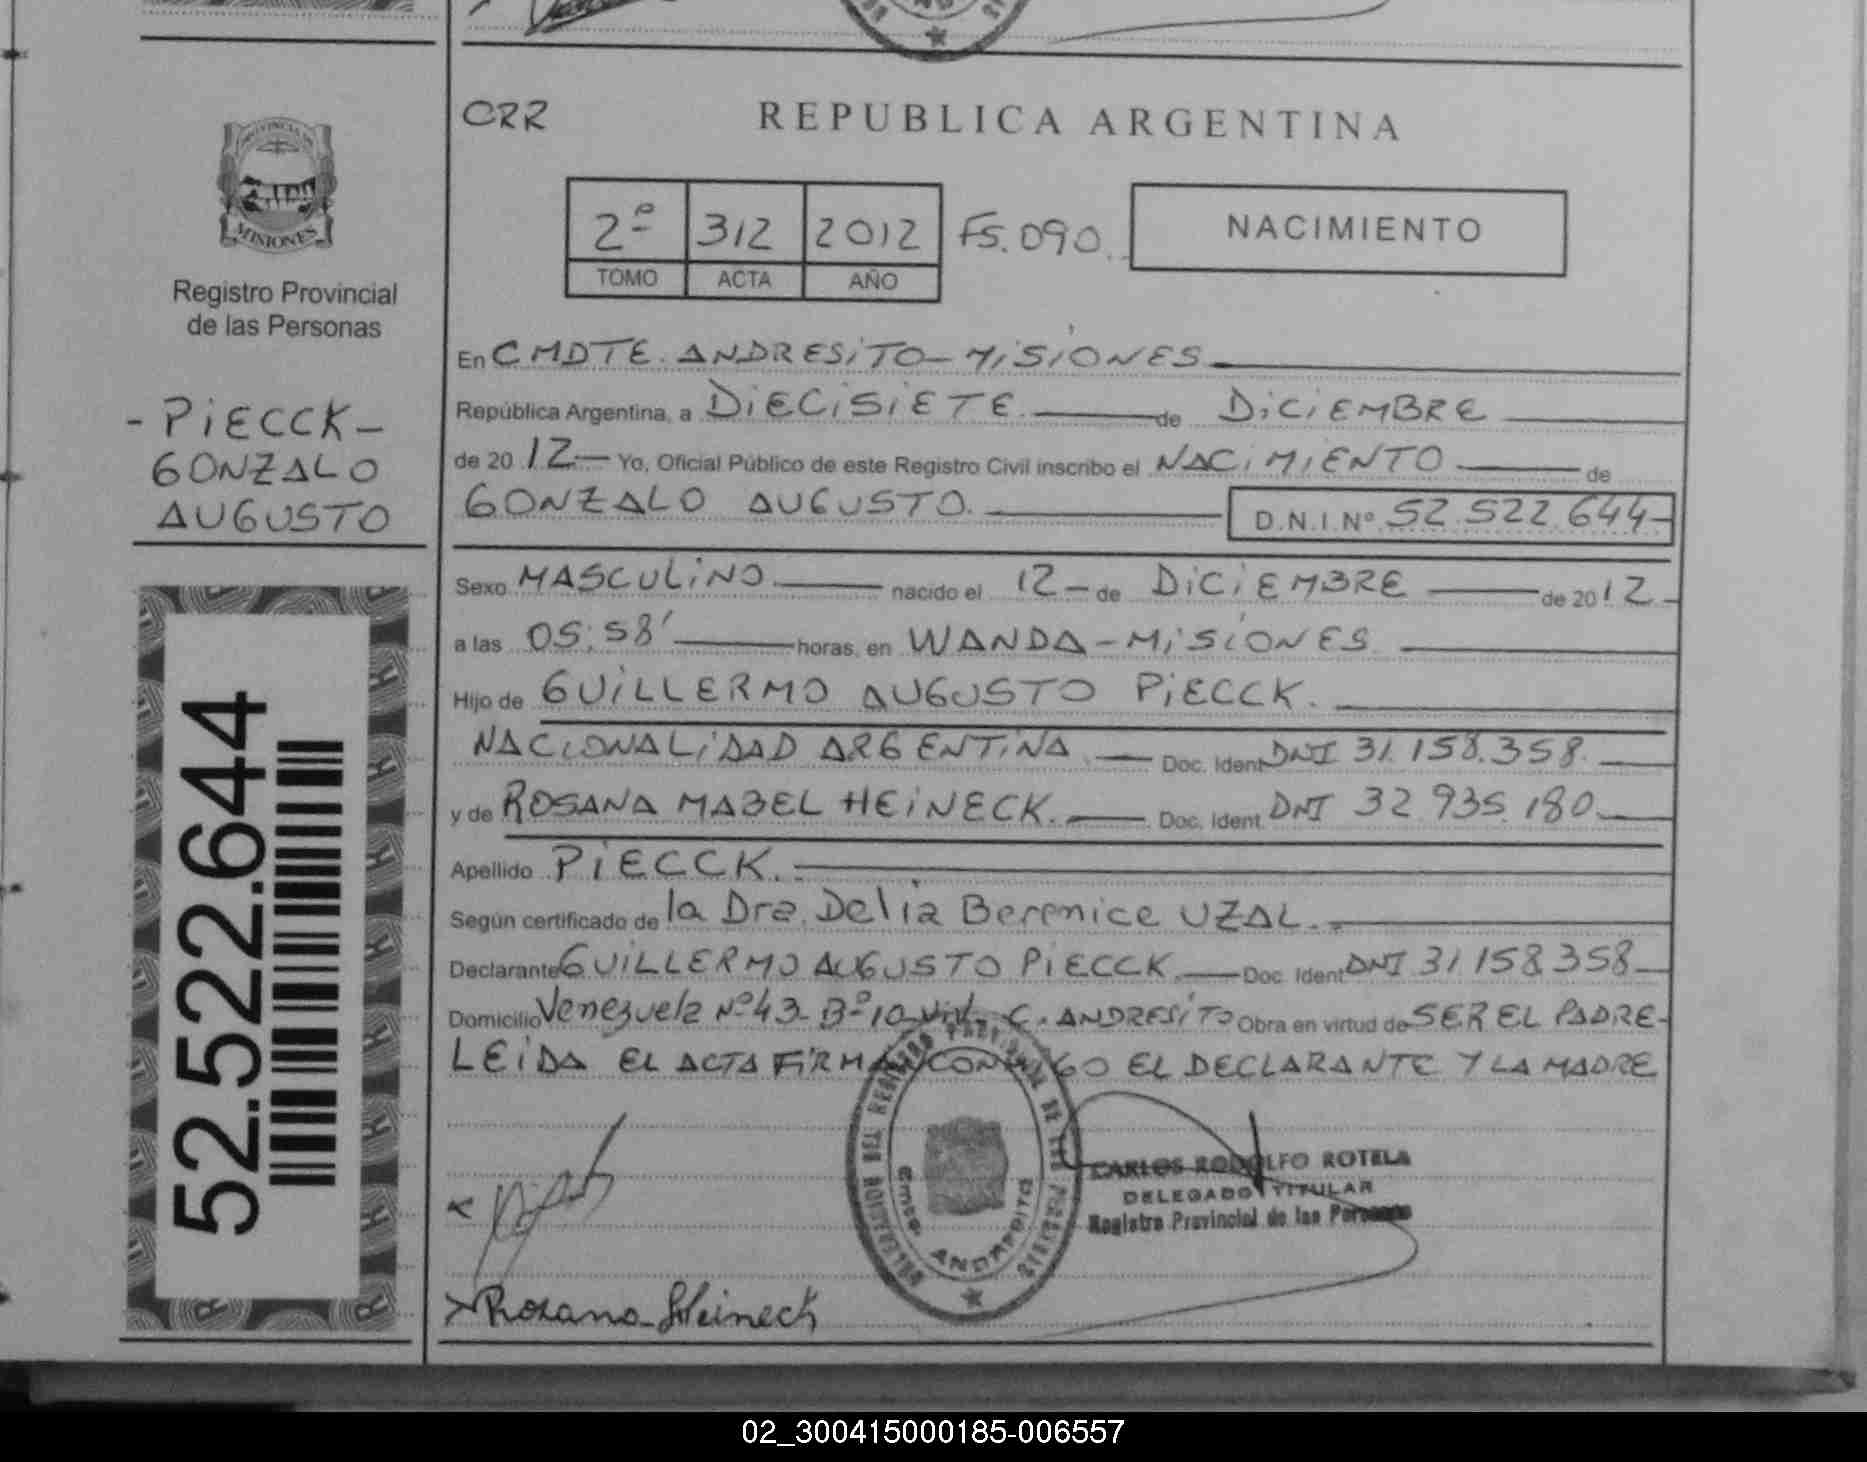 PROVINCIA DE
MISIONES
Registro Provincial
de las Personas
- PIECCK -
GONZALO
AUGUSTO
52.522.644
CRR
REPUBLICA ARGENTINA
2º 312 2012 FS. 090.
TOMO ACTA AÑO
NACIMIENTO
En CMDTE. ANDRESITO - MISIONES
República Argentina, a DIECISIETE de DICIEMBRE
de 20 12 Yo, Oficial Público de este Registro Civil inscribo el NACIMIENTO de
GONZALO AUGUSTO. D.N.I. Nº 52.522.644-
Sexo MASCULINO nacido el 12 - de DICIEMBRE de 20 12 -
a las 05:58' horas, en WANDA - MISIONES
Hijo de GUILLERMO AUGUSTO PIECCK.
NACIONALIDAD ARGENTINA Doc. Ident DNI 31.158.358.
y de ROSANA MABEL HEINECK. Doc. Ident. DNI 32.935.180
Apellido PIECCK.
Según certificado de la Dra. Delia Berenice UZAL.
Declarante GUILLERMO AUGUSTO PIECCK. Doc. Ident DNI 31.158.358
Domicilio Venezuela Nº 43 - Bº 10 Viv. C. ANDRESITO Obra en virtud de SER EL PADRE-
LEIDA EL ACTA FIRMAN CONMIGO EL DECLARANTE Y LA MADRE
DELEGACION DEL REGISTRO PROVINCIAL DE LAS PERSONAS
ANDRESITO
CARLOS RODOLFO ROTELA
DELEGADO TITULAR
Registro Provincial de las Personas
Rosana Heineck
02_300415000185-006557